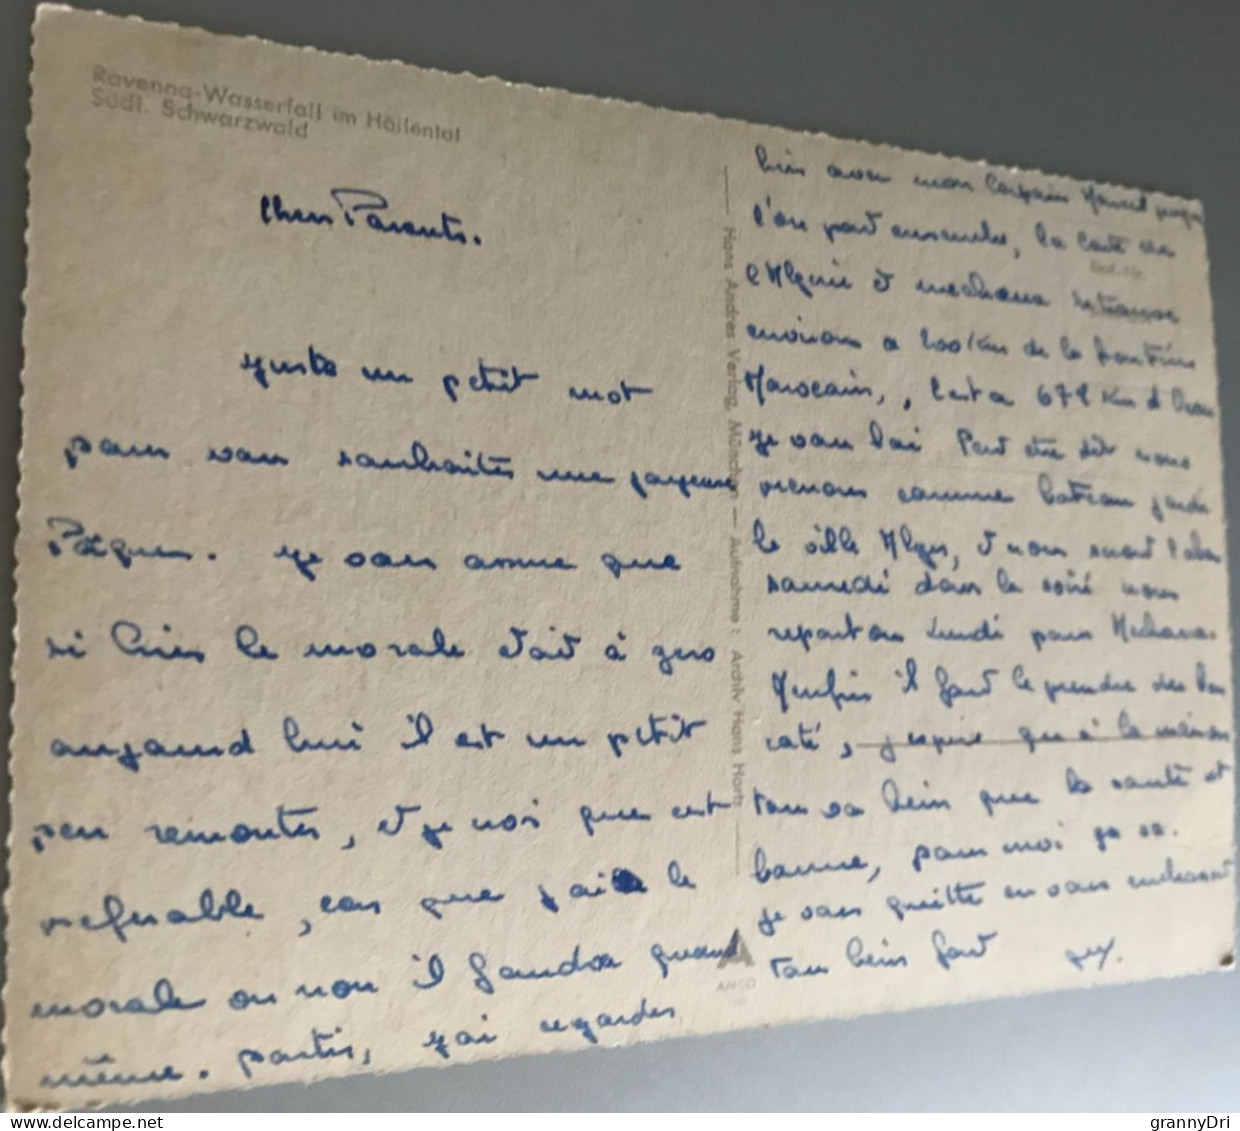 Ravenna-Wasserfall im Höllental
Südl. Schwarzwald
Chers Parents.
juste un petit mot
pour vous souhaites une joyeuse
Pâques. je vous assure que
si hier le morale était à zero
aujourd hui il est un petit
peu remontes, et je vois que c est
preferable, car que j'ai le
morale ou non il faudra quand
même. partir, j'ai regardes
Hans Andres Verlag, München — Aufnahme: Archiv Hans Hartz
ANCO
hier avec mon Copain Marcel
l'on part ensemble, la carte de
l'Algerie et mecheria se trouve
environ a 200 Km de la frontière
Marocain, c'est a 678 Km d Oran
je vous lai Peut etre dit nous
prenons comme bateau
le ville Alger, et nous
samedi dans la soiré nous
repartons Lundi pour Mecheria.
Menfin il faut le prendre du bon
coté, j'espere qu'à la maison
tous va bien que la santé est
bonne, pour moi ça va.
je vous quitte en vous embrassant
tous bien fort Guy.
www.delcampe.net
grannyDri